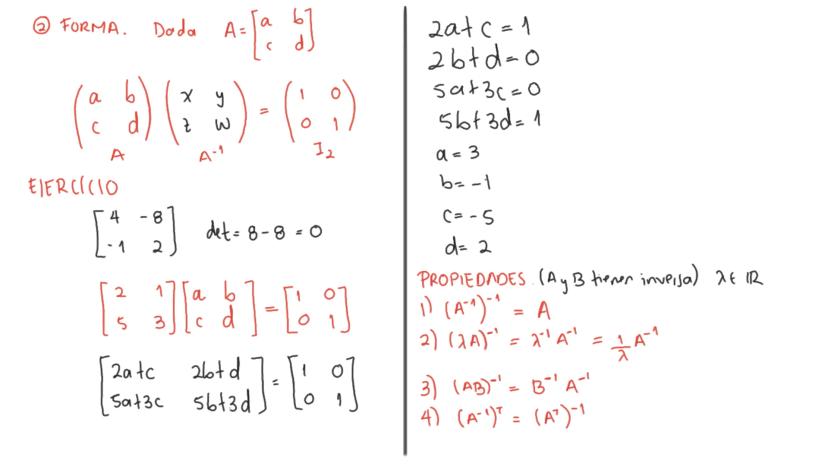 ② FORMA. Dada A = [a b; c d]
(a b; c d) (x y; z w) = (1 0; 0 1)
A A⁻¹ I₂
EJERCÍCIO
[4 -8; -1 2] det = 8 - 8 = 0
[2 1; 5 3] [a b; c d] = [1 0; 0 1]
[2a+c 2b+d; 5a+3c 5b+3d] = [1 0; 0 1]
2a+c = 1
2b+d = 0
5a+3c = 0
5b+3d = 1
a = 3
b = -1
c = -5
d = 2
PROPIEDADES (A y B tienen inversa) λ ∈ ℝ
1) (A⁻¹)⁻¹ = A
2) (λA)⁻¹ = λ⁻¹ A⁻¹ = 1/λ A⁻¹
3) (AB)⁻¹ = B⁻¹ A⁻¹
4) (A⁻¹)ᵀ = (Aᵀ)⁻¹